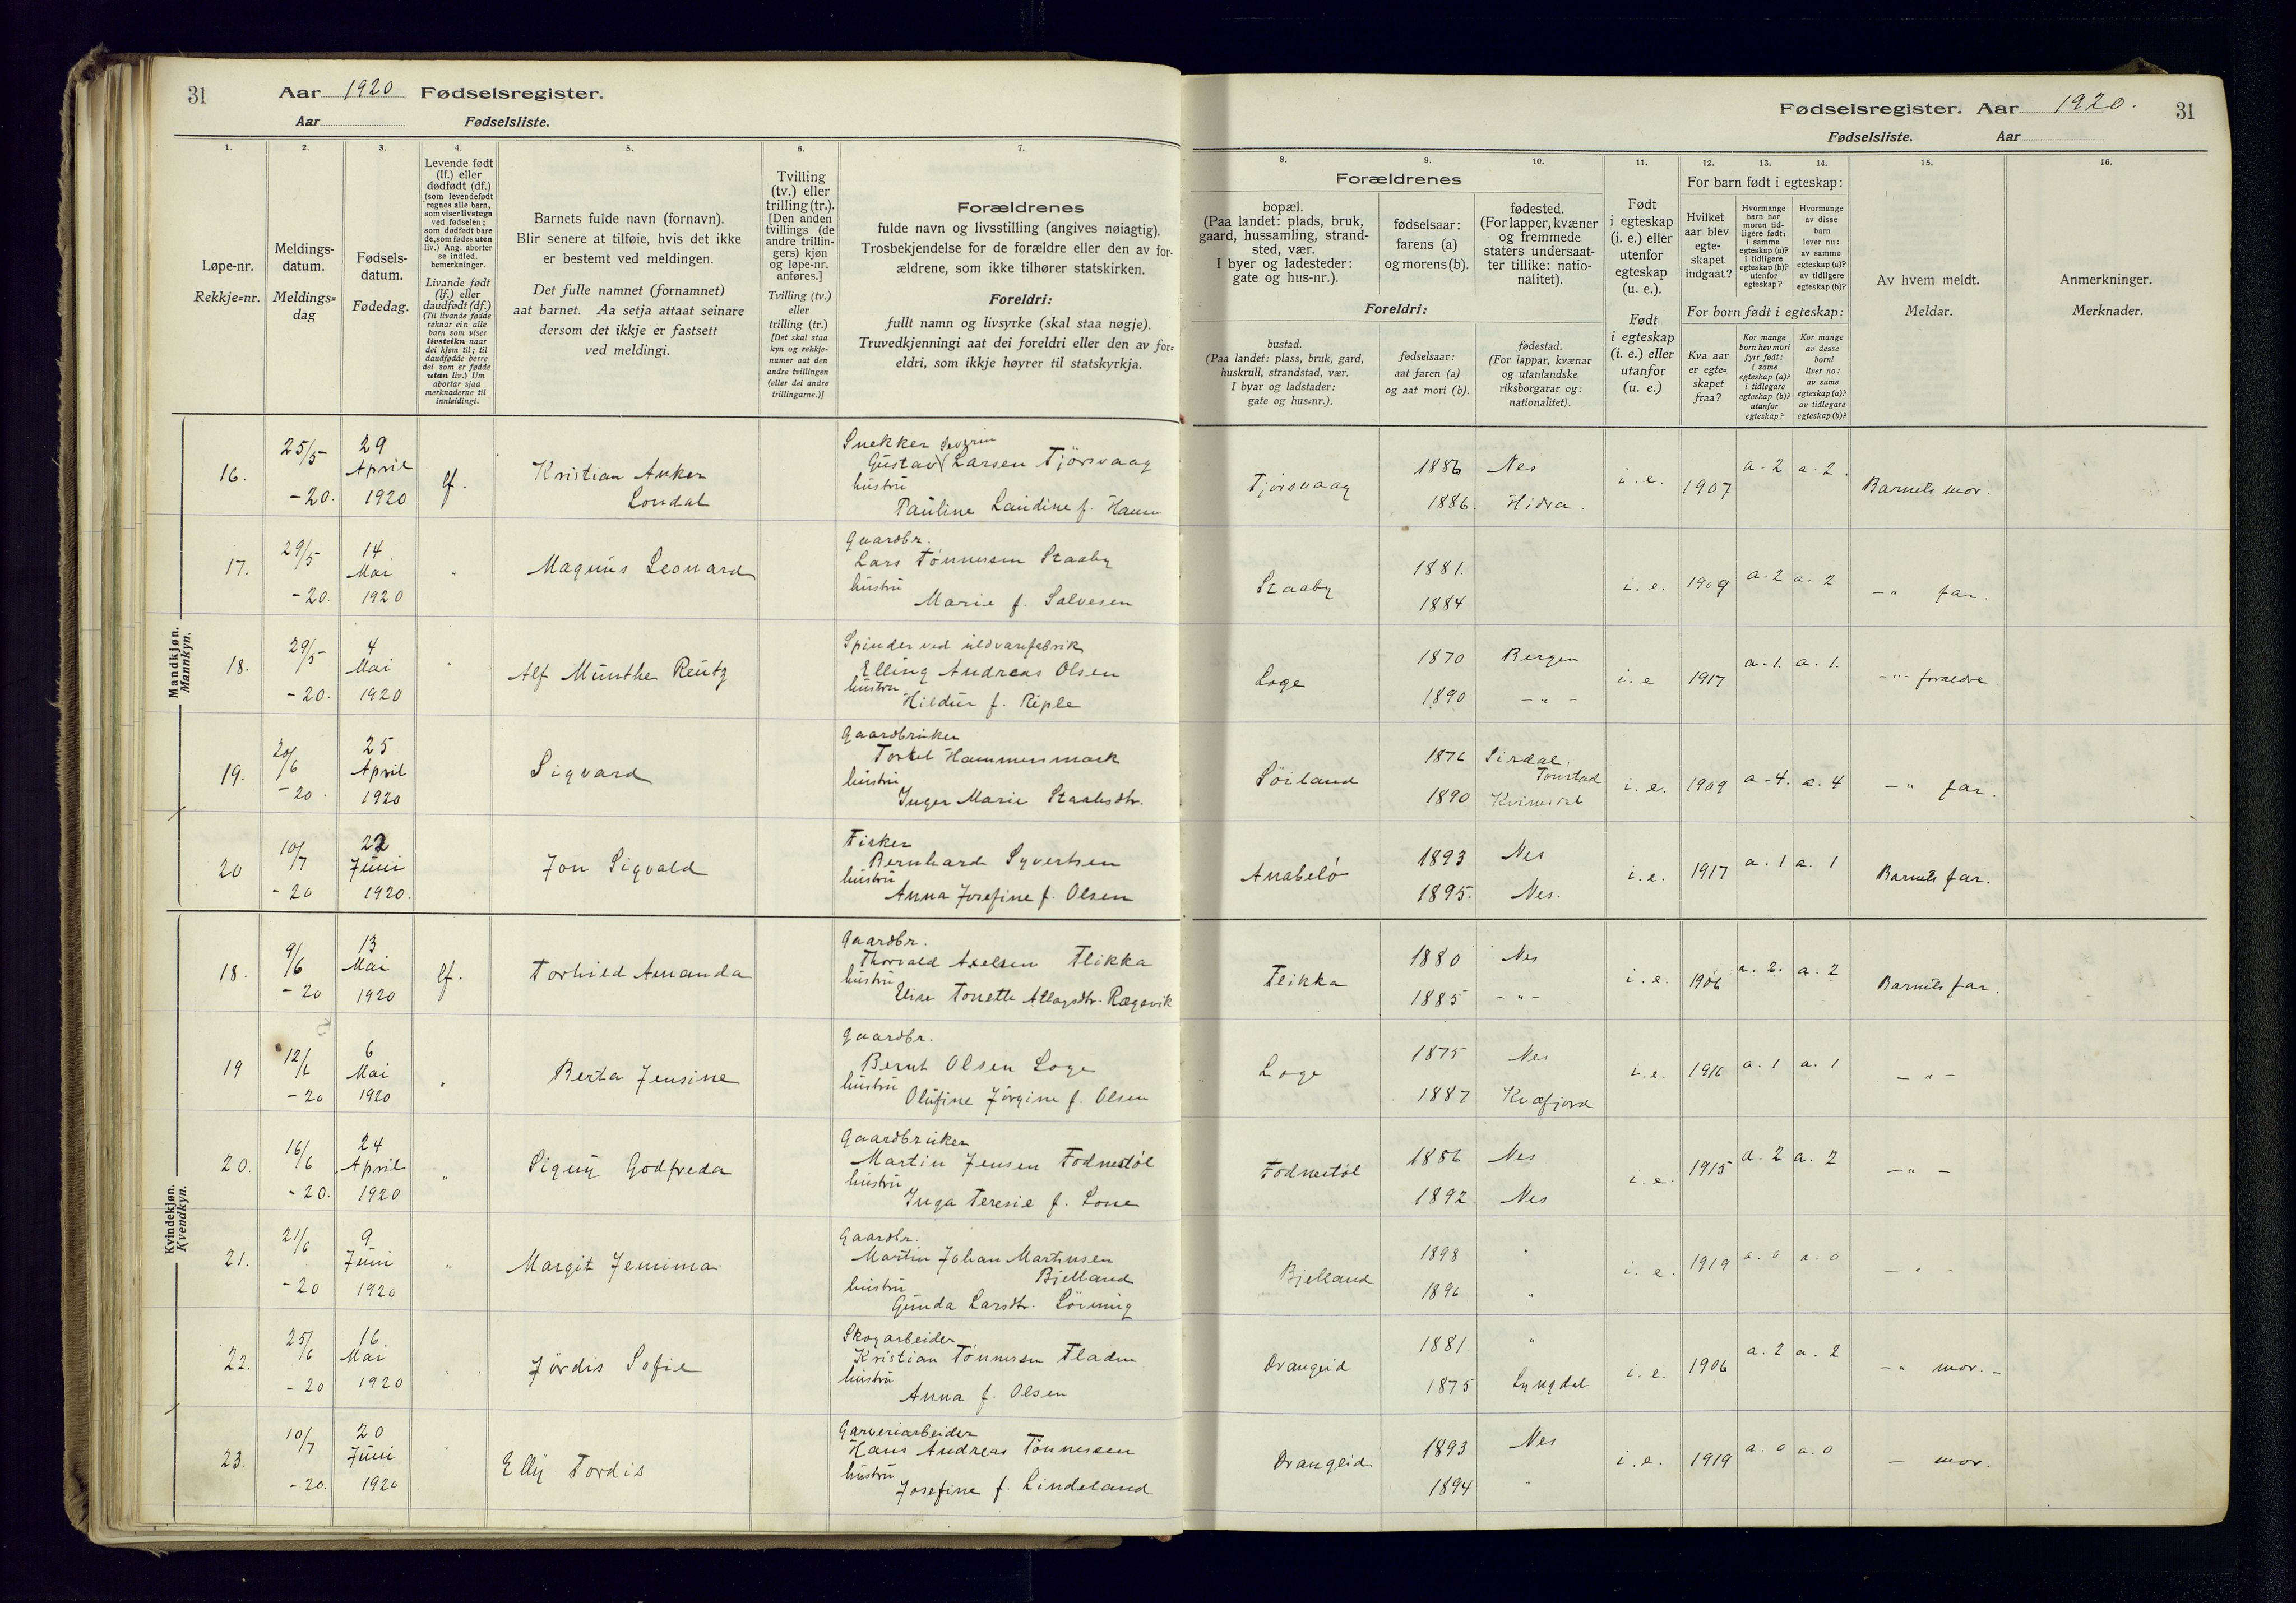 31 Aar 1920 Fødselsregister.
Aar Fødselsliste.
Fødselsregister. Aar 1920. 31
Fødselsliste. Aar
1. 2. 3. 4. 5. 6. 7.
Løpe-nr.
Rekkje=nr.
Meldings-
datum.
Meldings=
dag
Fødsels-
datum.
Fødedag.
Levende født
(lf.) eller
dødfødt (df.)
(som levendefødt
regnes alle barn,
som viser livstegn
ved fødselen;
som dødfødt bare
de, som fødes uten
liv.) Ang. aborter
se indled.
bemerkninger.
Livande født
(lf.) eller
daudfødt (df.)
(Til livande fødde
reknar ein alle
barn som viser
livsteikn naar
dei kjem til; til
daudfødde berre
dei som er fødde
utan liv.) Um
abortar sjaa
merknaderne til
innleidingi.
Barnets fulde navn (fornavn).
Blir senere at tilføie, hvis det ikke
er bestemt ved meldingen.
Det fulle namnet (fornamnet)
aat barnet. Aa setja attaat seinare
dersom det ikkje er fastsett
ved meldingi.
Tvilling
(tv.) eller
trilling (tr.).
[Den anden
tvillings (de
andre trillin-
gers) kjøn
og løpe-nr.
anføres.]
Tvilling (tv.)
eller
trilling (tr.)
[Det skal staa
kyn og rekkje-
numer aat den
andre tvillingen
(eller dei andre
trillingarne.)]
Forældrenes
fulde navn og livsstilling (angives nøiagtig).
Trosbekjendelse for de forældre eller den av for-
ældrene, som ikke tilhører statskirken.
Foreldri:
fullt namn og livsyrke (skal staa nøgje).
Truvedkjenningi aat dei foreldri eller den av for=
eldri, som ikkje høyrer til statskyrkja.
8. 9. 10. 11. 12. 13. 14. 15. 16.
Forældrenes
bopæl.
(Paa landet: plads, bruk,
gaard, hussamling, strand-
sted, vær.
I byer og ladesteder:
gate og hus-nr.).
fødselsaar:
farens (a)
og morens (b).
fødested.
(For lapper, kvæner
og fremmede
staters undersaat-
ter tillike: natio-
nalitet).
Foreldri:
bustad.
(Paa landet: plass, bruk, gard,
huskrull, strandstad, vær.
I byar og ladstader:
gate og hus=nr.).
fødselsaar:
aat faren (a)
og aat mori (b).
fødestad.
(For lappar, kvænar
og utanlandske
riksborgarar og:
nationalitet).
Født
i egteskap
(i. e.) eller
utenfor
egteskap
(u. e.).
Født
i egteskap
(i. e.) eller
utanfor
(u. e.)
For barn født i egteskap:
Hvilket
aar blev
egte-
skapet
indgaat?
Hvormange
barn har
moren tid-
ligere født:
i samme
egteskap (a)?
i tidligere
egteskap (b)?
utenfor
egteskap?
Hvormange
av disse
barn
lever nu:
av samme
egteskap (a)?
av tidligere
egteskap (b)?
For born født i egteskap:
Kva aar
er egte=
skapet
fraa?
Kor mange
born hev mori
fyrr født:
i same
egteskap (a)?
i tidlegare
egteskap (b)?
utanfor
egteskap?
Kor mange
av desse
borni
liver no:
av same
egteskap (a)?
av tidlegare
egteskap (b)?
Av hvem meldt.
Meldar.
Anmerkninger.
Merknader.
Mandkjøn.
Mannkyn.
16. 25/5 -20. 29 April 1920 lf. Kristian Anker Londal
Snekker Gustav Severin Larsen Tjörsvaag
hustru Pauline Laudine f. Hamn
Tjörsvaag 1886 Nes 1886. Hidra. i. e. 1907 a. 2 a. 2. Barnets mor.
17. 29/5 -20. 14 Mai 1920 " Magnus Leonard
Gaardbr. Lars Tönnesen Staaby
hustru Marie f. Salvesen
Staaby 1881. 1884 i. e. 1909 a. 2 a. 2 -"- far.
18. 29/5 -20. 4 Mai 1920 " Alf Munthe Reutz
Spinder ved uldvarefabrik Elling Andreas Olsen
hustru Hildur f. Riple
Loge 1870 Bergen 1890 -"- i. e 1917 a. 1. a. 1. -"- foraeldre.
19. 20/6 -20. 25 April 1920 Sigvard
Gaardbruker Torkel Hammersmark
hustru Inger Marie Staalesdtr.
Sörland 1876 Sirdal, Tonstad 1890 Kvinesdal i. e. 1909 a. 4. a. 4 -"- far.
20 10/7 -20 22 Juni 1920. Jon Sigvald
Fisker Bernhard Syvertsen
hustru Anna Josefine f. Olsen
Anabelö 1893 Nes 1895. Nes. i. e. 1917 a. 1 a. 1 Barnets far.
Kvindekjøn.
Kvendkyn.
18. 9/6 -20 13 Mai 1920 lf. Torhild Amanda
Gaardbr. Thorvald Axelsen Flikka
hustru Elise Tonette Atlagsdtr. Rægevik
Flikka 1880 Nes 1885 -"- i. e. 1906 a. 2. a. 2 Barnets far.
19 12/6 -20 6 Mai 1920 " Berta Jensine
Gaardbr. Bernt Olsen Loge
hustru Olufine Jörgine f. Olsen
Loge 1875 Nes 1887 Kvæfjord i. e. 1916 a. 1 a. 1 -"-
20. 16/6 -20. 24 April 1920 " Signy Godfreda
Gaardbruker Martin Jensen Fodnestöl
hustru Inga Teresie f. Lone
Fodnestöl 1886 Nes 1892 Nes i. e. 1915 a. 2 a. 2 -"-
21. 21/6 -20 9 Juni 1920 " Margit Jemima
Gaardbr. Martin Johan Martinsen Bjelland
hustru Gunda Larsdtr. Lövning
Bjelland 1898 " 1896 " i. e. 1919 a. 0 a. 0 -"-
22. 25/6 -20 16 Mai 1920 " Jördis Sofie
Skogarbeider Kristian Tönnesen Fladen
hustru Anna f. Olsen
Drangeid 1881 " 1875 Lyngdal i. e. 1906 a. 2 a. 2 -"- mor. -
23. 10/7 -20. 20 Juni 1920 " Elly Tordis
Garveriarbeider Hans Andreas Tönnessen
hustru Josefine f. Lindeland
Drangeid 1893 Nes 1894 " i. e. 1919 a. 0 a. 0 - mor.